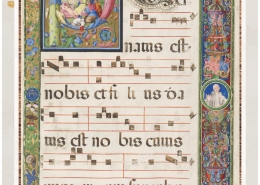 natus est
nobis et fili us da
tus est no bis cuius